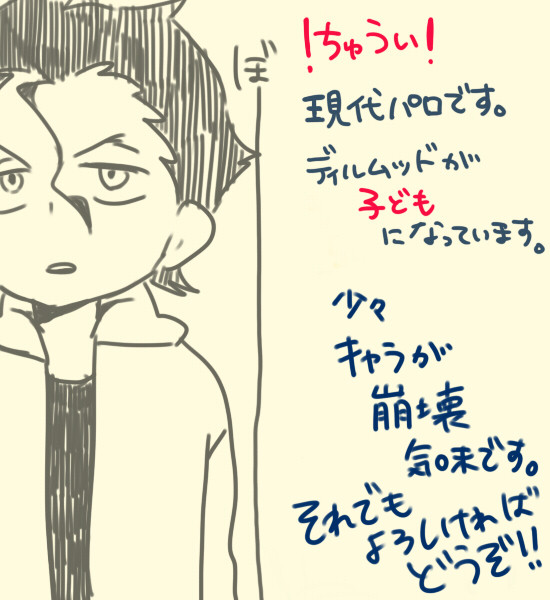 ぼー
!ちゅうい!
現代パロです。
ディルムッドが
子ども
になっています。
少々
キャラが
崩壊
気味です。
それでも
よろしければ
どうぞ!!